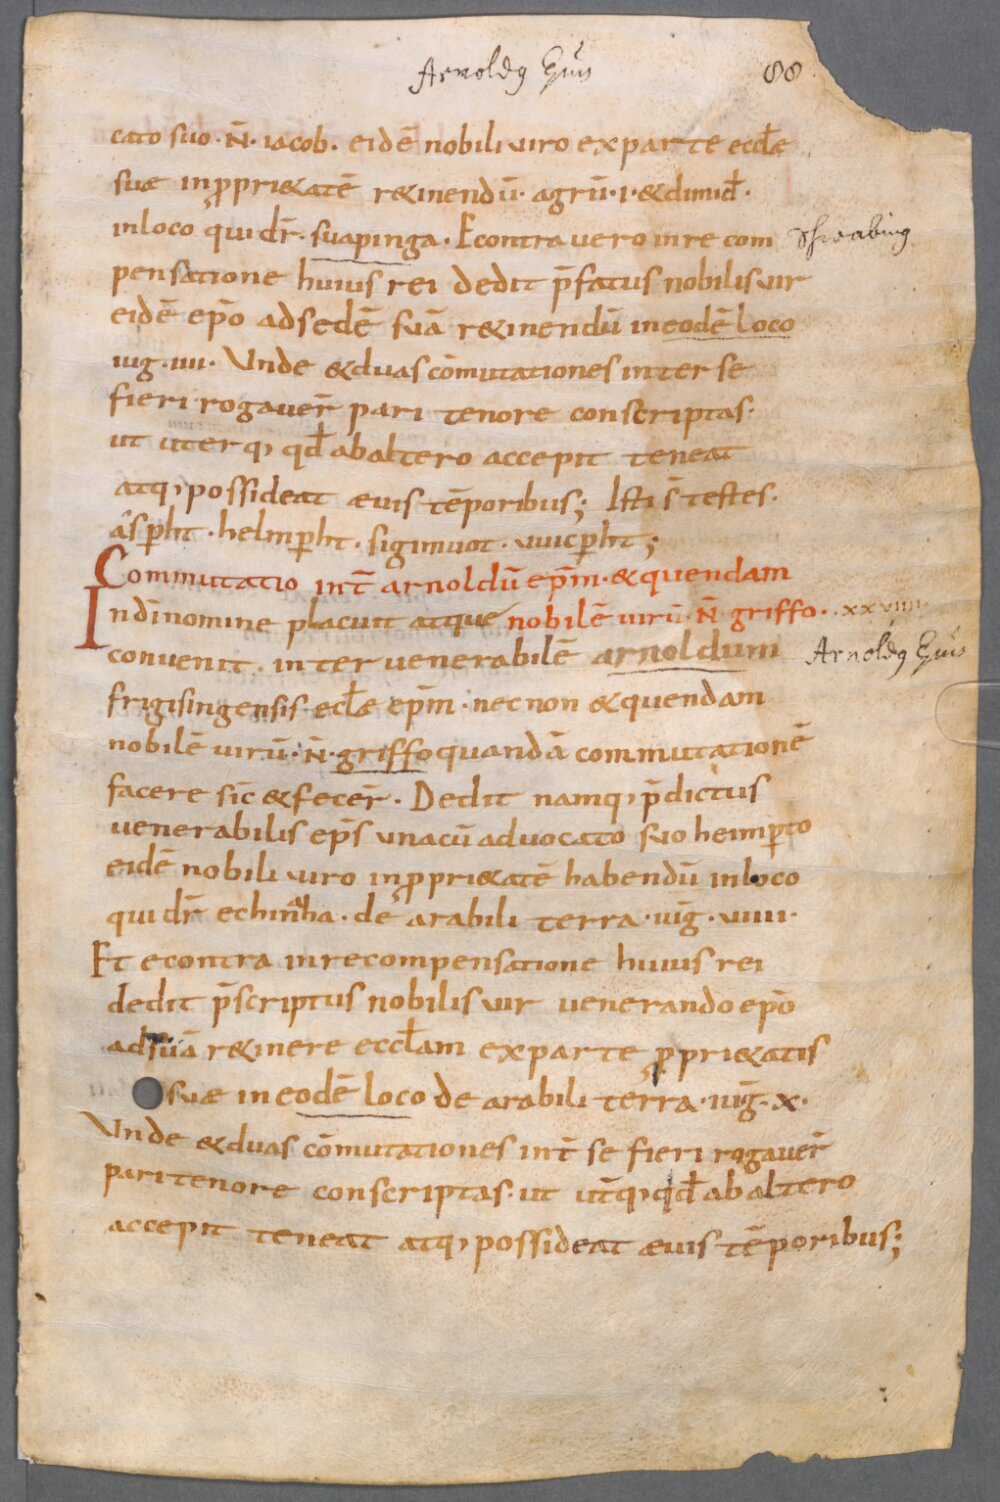 Arnoldꝰ Ep̃us 88
cato suo · N̄ · iacob · eidē nobili uiro ex parte eccłæ
suæ in ꝓpri&atē r&inendū · agrū · i · & dimid̄ ·
in loco qui dr̄ · suapinga · Econtra uero in re com
Schwabing
pensatione huius rei dedit p̄fatus nobilis uir
eidē ep̄o ad sedē suā r&inendū in eodē loco
iug · iiii · Unde & duas cōmutationes inter se
fieri rogauer̄ pari tenore conscriptas ·
ut uterq; qd̄ ab altero accepit teneat
atq; possideat æuis tēporibus; Isti s̄ testes ·
asp̄ht · helmp̄ht · sigimuot · uuicp̄ht ;
Commutatio int̄ arnoldū ep̄m · & quendam
In dī nomine placuit atque nobilē uirū · N̄ · griffo · xxviiii ·
conuenit · inter uenerabilē arnoldum
Arnoldꝰ Ep̃us
frigisingensis · ecłæ ep̄m · nec non & quendam
nobilē uirū · N̄ · griffo quandā commutationē
facere sīc & fecer̄ · Dedit namq; p̄dictus
uenerabilis ep̄s una cū aduocato suo heimp̄to
eidē nobili uiro in ꝓpri&atē habendū in loco
qui dr̄ echinaha · de arabili terra · iuḡ · uiiii ·
Et econtra in recompensatione huius rei
dedit p̄scriptus nobilis uir uenerando ep̄o
ad suā r&inere eccłam ex parte ꝓpri&atis
suæ in eodē loco de arabili terra · iuḡ · x ·
Unde & duas cōmutationes int̄ se fieri rogauer̄
pari tenore conscriptas · ut ut̄q; qd̄ ab altero
accepit teneat atq; possideat æuis tēporibus;